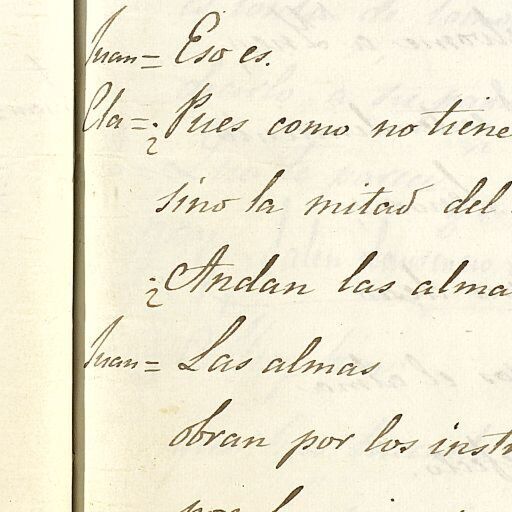 Juan = Eso es.
Cla = ¿Pues como no tiene
sino la mitad del
¿Andan las alma
Juan = Las almas
obran por los inst